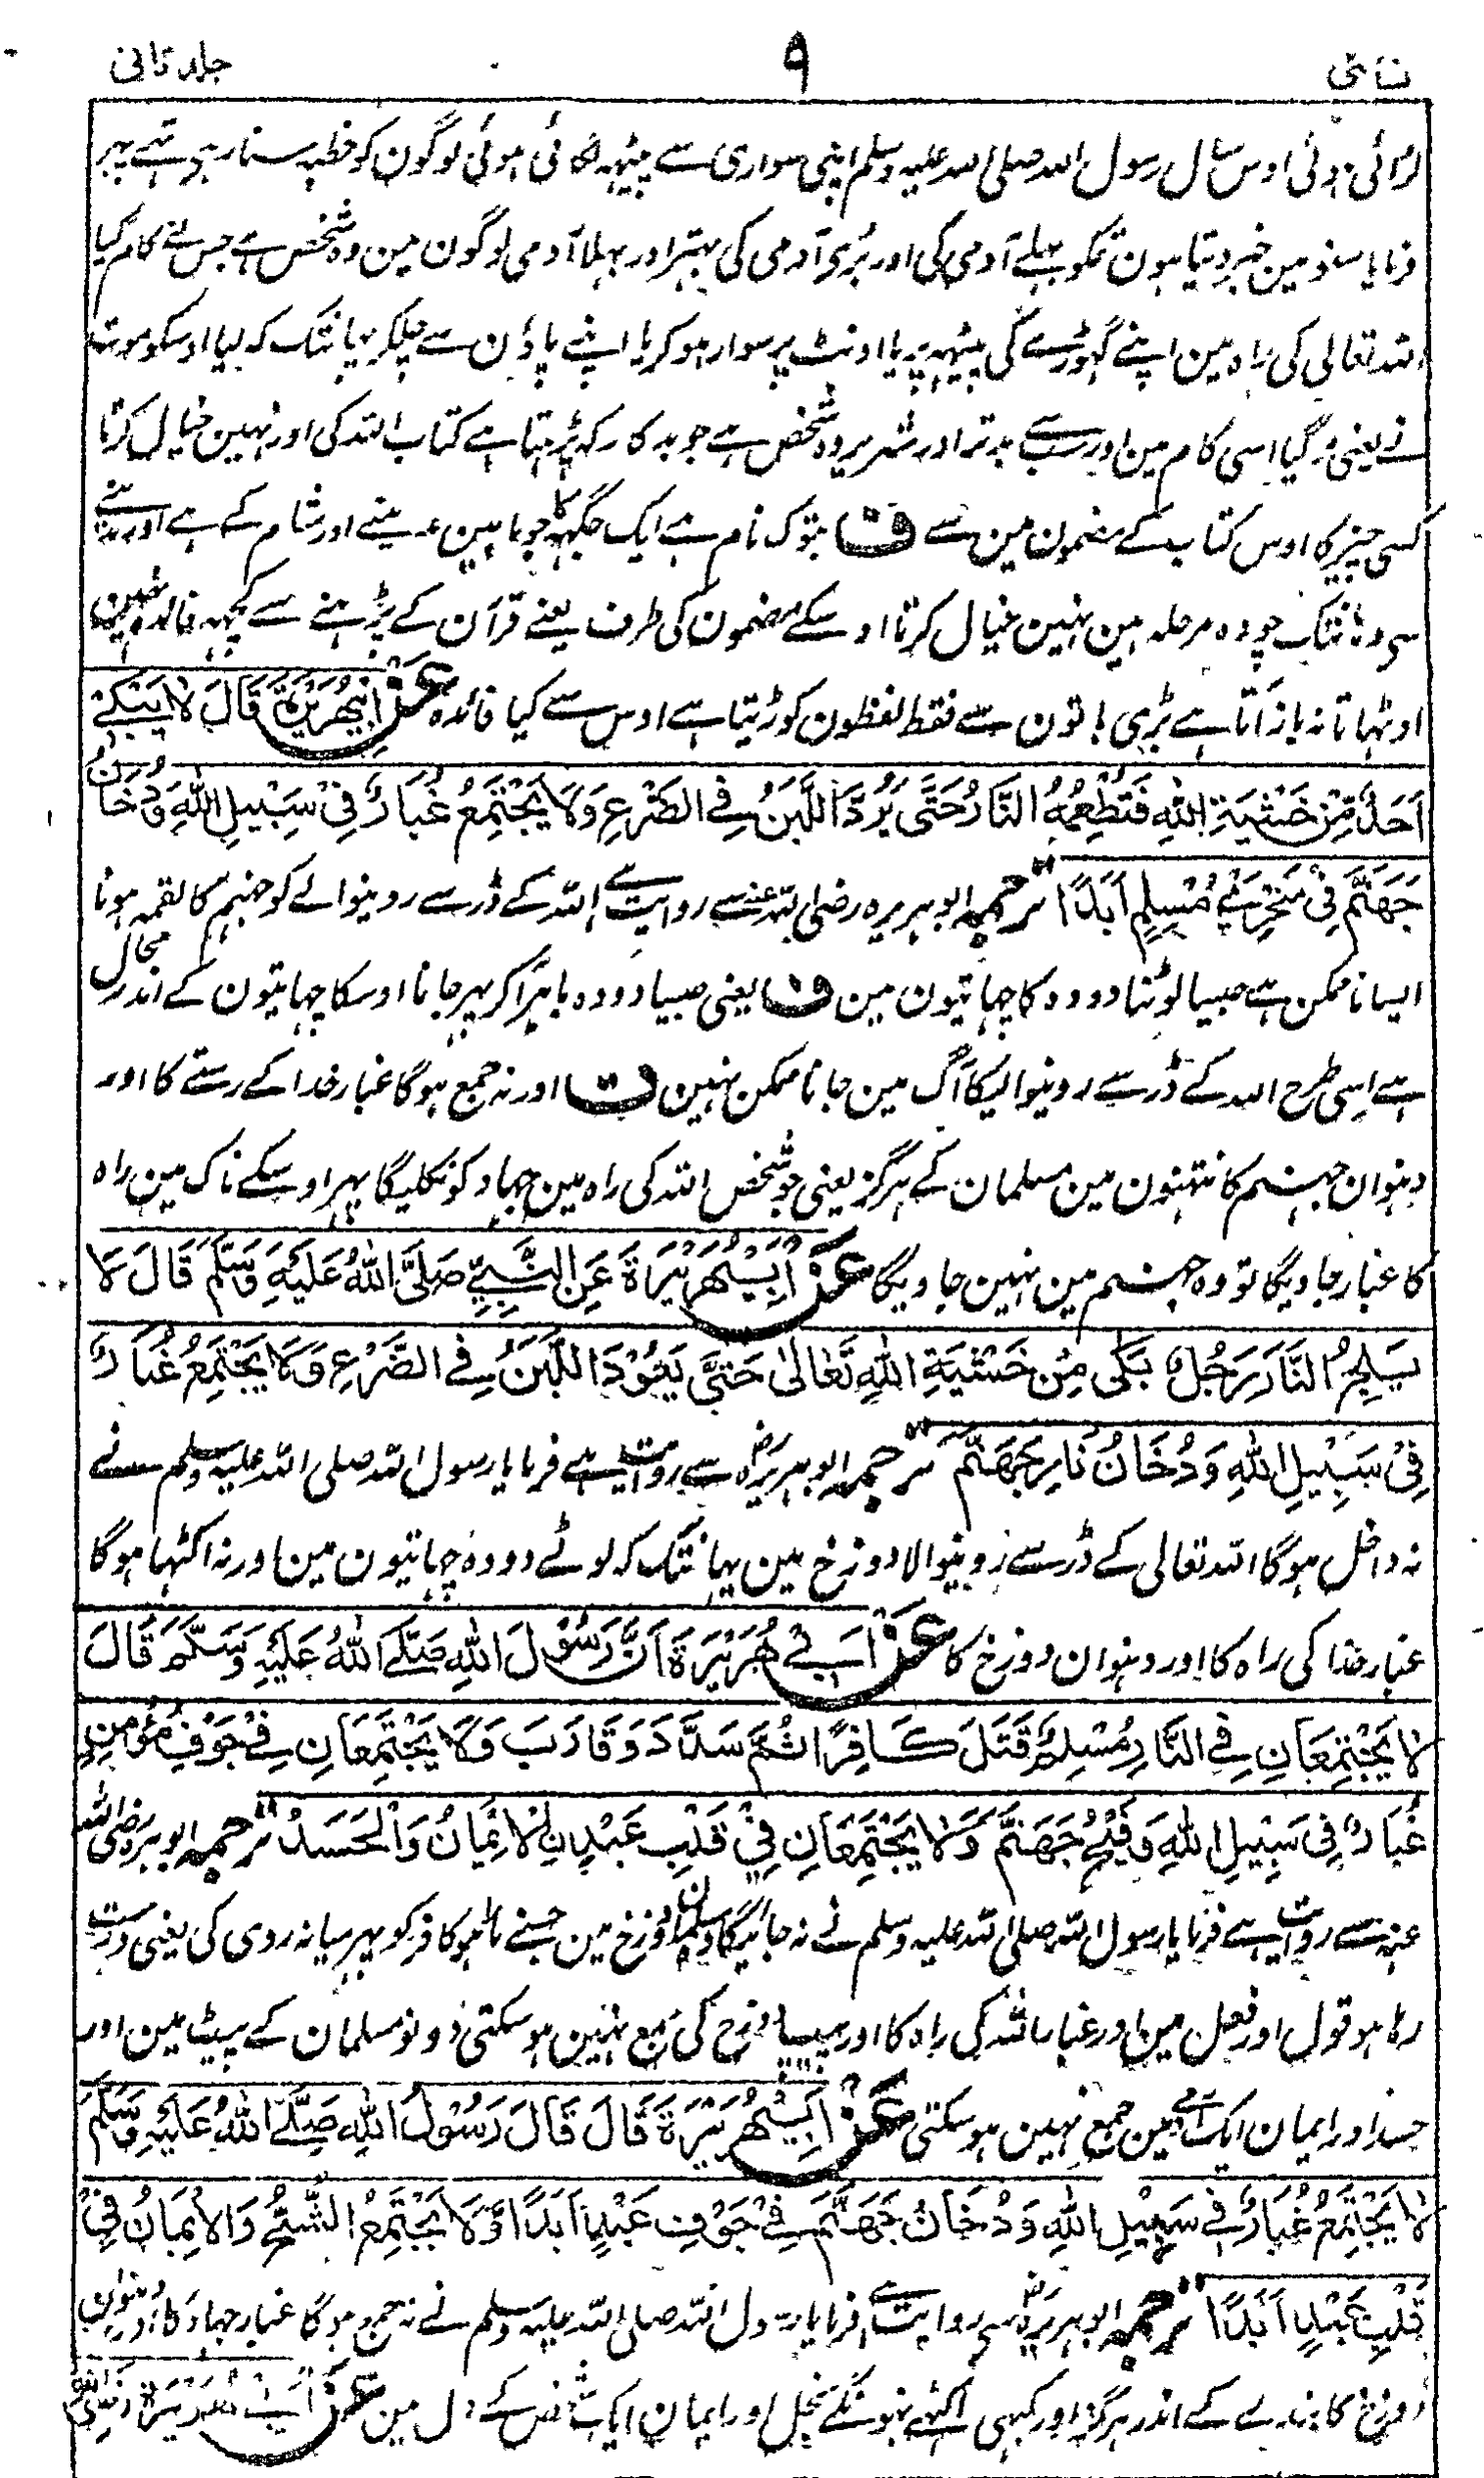 نسائی ۹ جلد ثانی
لڑائی ہوئی اوس سال رسول اللہ صلی اللہ علیہ وسلم اپنی سواری سے پیٹہہ لگائی ہوئی لوگون کو خطبہ سنا رہی تہے پہر
فرمایا سنو مین خبر دیتا ہون تمکو بہلے آدمی کی اور بُری آدمی کی بہتر اور بہلا آدمی لوگون مین وہ شخص ہے جس نے کام کیا
اللہ تعالی کی راہ مین اپنے گہوڑے کی پیٹہہ پر یا اونٹ پر سوار ہو کر یا اپنے پاؤن سے چلکر یہانتک کہ لیا اوسکو موت
نے یعنی مر گیا اسی کام مین اور سب سے بدتر اور شریر وہ شخص ہے جو بدکار کہ پڑہتا ہے کتاب اللہ کی اور نہین خیال کرتا
کسی چیز کا اوس کتاب کے مضمون مین سے ف تبوک نام ہے ایک جگہہ کا جو مابین مدینے اور شام کے ہے اور مدینے
سی وہانتک چودہ مرحلہ ہین نہین خیال کرتا اوسکے مضمون کی طرف یعنے قرآن کے پڑہنے سے کچہہ فائدہ نہین
اوٹہاتا نہ باز آتا ہے بُری باتون سے فقط لفظون کو رٹیتا ہے اوس سے کیا فائدہ عَنْ اَبِیْ هُرَیْرَةَ قَالَ لَا یَبْكِیْ
اَحَدٌ مِّنْ خَشْیَةِ اللّٰهِ فَتَطْعَمُهُ النَّارُ حَتّٰی یُرَدَّ اللَّبَنُ فِی الضَّرْعِ وَلَا یَجْتَمِعُ غُبَارٌ فِیْ سَبِیْلِ اللّٰهِ وَدُخَانُ
جَهَنَّمَ فِیْ مَنْخِرَیْ مُسْلِمٍ اَبَدًا ترجمہ ابوہریرہ رضی اللہ عنہ سے روایت ہے اللہ کے ڈر سے رونیوالے کو جہنم کا لقمہ ہونا
ایسا ناممکن ہے جیسا لوٹنا دودہ کا چہاتیون مین ف یعنی جیسا دودہ باہر آکر پہر جانا اوسکا چہاتیون کے اندر محال
ہے اِسی طرح اللہ کے ڈر سے رونیوالیکا آگ مین جانا ممکن نہین ف اور نہ جمع ہوگا غبار خدا کے رستے کا اور
دہنوان جہنم کا نتہنون مین مسلمان کے ہرگز یعنی جو شخص اللہ کی راہ مین جہاد کو نکلیگا پہر اوسکے ناک مین راہ
کا غبار جاویگا تو وہ جہنم مین نہین جاویگا عَنْ اَبِیْ هُرَیْرَةَ عَنِ النَّبِیِّ صَلَّی اللّٰهُ عَلَیْهِ وَسَلَّمَ قَالَ لَا
یَلِجُ النَّارَ رَجُلٌ بَكٰی مِنْ خَشْیَةِ اللّٰهِ تَعَالٰی حَتّٰی یَعُوْدَ اللَّبَنُ فِی الضَّرْعِ وَلَا یَجْتَمِعُ غُبَارٌ
فِیْ سَبِیْلِ اللّٰهِ وَدُخَانُ نَارِ جَهَنَّمَ ترجمہ ابوہریرہؓ سے روایت ہے فرمایا رسول اللہ صلی اللہ علیہ وسلم نے
نہ داخل ہوگا اللہ تعالی کے ڈر سے رونیوالا دوزخ مین یہانتک کہ لوٹے دودہ چہاتیون مین اور نہ اکٹہا ہوگا
غبار خدا کی راہ کا اور دہنوان دوزخ کا عَنْ اَبِیْ هُرَیْرَةَ اَنَّ رَسُوْلَ اللّٰهِ صَلَّی اللّٰهُ عَلَیْهِ وَسَلَّمَ قَالَ
لَا یَجْتَمِعَانِ فِی النَّارِ مُسْلِمٌ قَتَلَ كَافِرًا ثُمَّ سَدَّدَ وَقَارَبَ وَلَا یَجْتَمِعَانِ فِیْ جَوْفِ مُؤْمِنٍ
غُبَارٌ فِیْ سَبِیْلِ اللّٰهِ وَفَیْحُ جَهَنَّمَ وَلَا یَجْتَمِعَانِ فِیْ قَلْبِ عَبْدٍ نِ الْاِیْمَانُ وَالْحَسَدُ ترجمہ ابوہریرہ رضی اللہ
عنہ سے روایت ہے فرمایا رسول اللہ صلی اللہ علیہ وسلم نے نہ جائیگا وہ مسلمان دوزخ مین جسنے مارا ہو کافر کو پہر میانہ روی کی یعنی درست
رہا ہو قول اور فعل مین اور غبار اللہ کی راہ کا اور دوزخ کی جمع نہین ہو سکتی دونو مسلمان کے پیٹ مین اور
حسد اور ایمان ایک آدمی مین جمع نہین ہو سکتی عَنْ اَبِیْ هُرَیْرَةَ قَالَ قَالَ رَسُوْلُ اللّٰهِ صَلَّی اللّٰهُ عَلَیْهِ وَسَلَّمَ
لَا یَجْتَمِعُ غُبَارٌ فِیْ سَبِیْلِ اللّٰهِ وَدُخَانُ جَهَنَّمَ فِیْ جَوْفِ عَبْدٍ اَبَدًا وَّلَا یَجْتَمِعُ الشُّحُّ وَالْاِیْمَانُ فِیْ
قَلْبِ عَبْدٍ اَبَدًا ترجمہ ابوہریرہؓ سی روایت ہے فرمایا رسول اللہ صلی اللہ علیہ وسلم نے نہ جمع ہوگا غبار جہاد کا اور دہنوان
دوزخ کا بندے کے اندر ہرگز اور کبہی اکٹہے نہونگے بخل اور ایمان ایک شخص کے دل مین عَنْ اَبِیْ هُرَیْرَةَ رَضِیَ اللّٰهُ